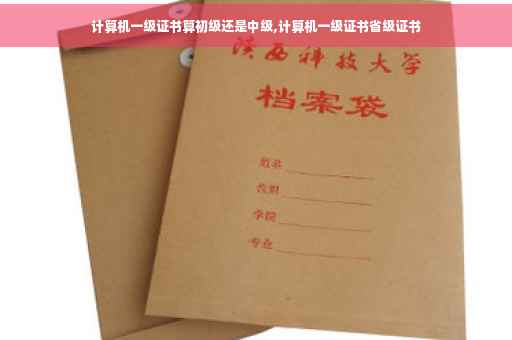 计算机一级证书算初级还是中级,计算机一级证书省级证书
陕西科技大学
档案袋
姓名
学院
专业